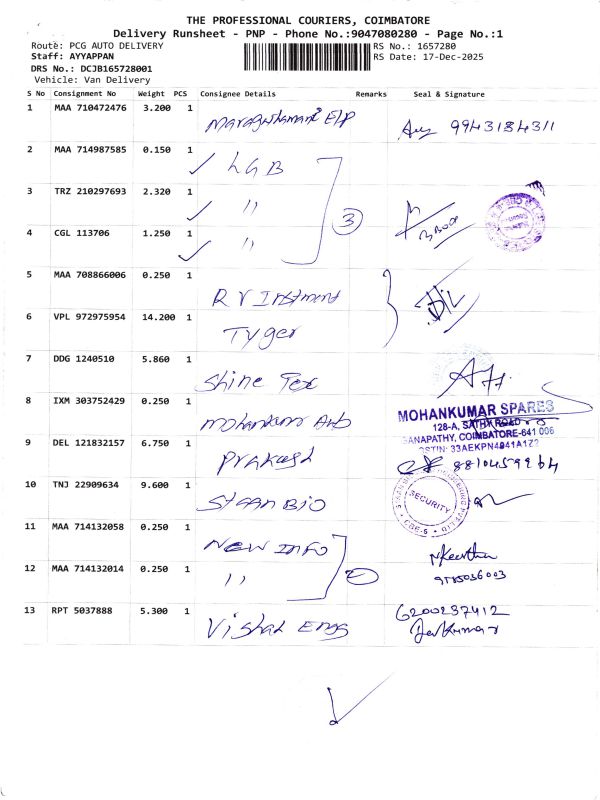 THE PROFESSIONAL COURIERS, COIMBATORE
Delivery Runsheet - PNP - Phone No.:9047080280 - Page No.:1
Route: PCG AUTO DELIVERY RS No.: 1657280
Staff: AYYAPPAN RS Date: 17-Dec-2025
DRS No.: DCJB165728001
Vehicle: Van Delivery
S No Consignment No Weight PCS Consignee Details Remarks Seal & Signature
1 MAA 710472476 3.200 1 9943184311
2 MAA 714987585 0.150 1 LGB
3 TRZ 210297693 2.320 1 "
3
4 CGL 113706 1.250 1 "
5 MAA 708866006 0.250 1 R V Instment
6 VPL 972975954 14.200 1 Tyger
7 DDG 1240510 5.860 1 Shine Tex
8 IXM 303752429 0.250 1 Mohankumar
MOHANKUMAR SPARES
128-A, SATHY ROAD
GANAPATHY, COIMBATORE-641 006
GSTIN: 33AEKPN4941A1Z2
9 DEL 121832157 6.750 1 Prakash
10 TNJ 22909634 9.600 1 Staan Bio
SECURITY
11 MAA 714132058 0.250 1 New Info
12 MAA 714132014 0.250 1 "
2
Nkeerthu
13 RPT 5037888 5.300 1 Vishal Engs 6200237412
Devkumar